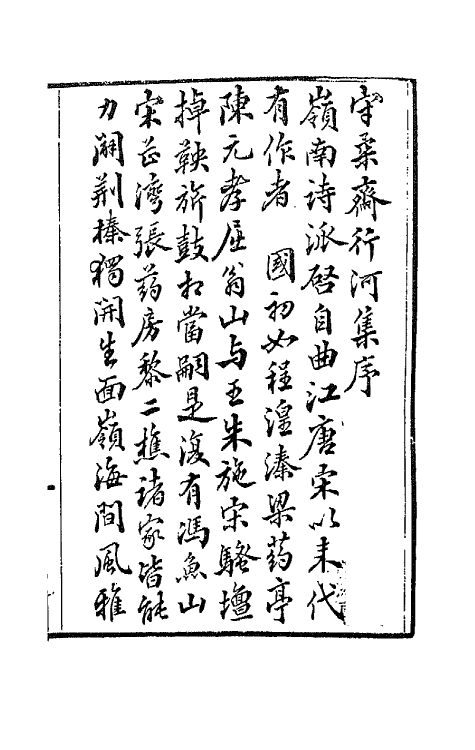 宋桑齋行河集序
嶺南诗派啓自曲江唐宋以来代
有作者　國初如程湟溱梁药亭
陳元孝屈翁山与王朱施宋騷壇
掉鞅旂鼓相當嗣是復有馮魚山
宋芷湾張药房黎二樵诸家皆能
力闢荆榛獨開生面嶺海間風雅